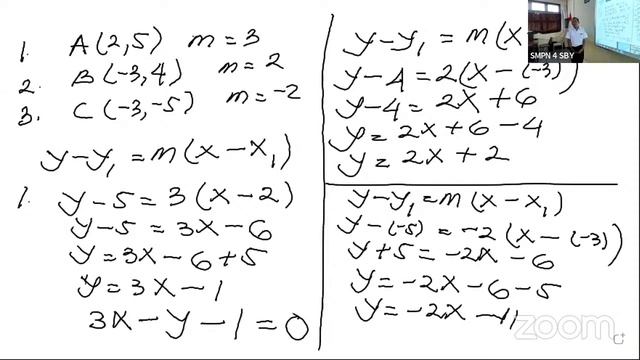 1. A(2,5) m = 3
2. B(-3,4) m = 2
3. C(-3,-5) m = -2
y - y₁ = m(x - x₁)
1. y - 5 = 3(x - 2)
y - 5 = 3x - 6
y = 3x - 6 + 5
y = 3x - 1
3x - y - 1 = 0
y - y₁ = m(x
y - 4 = 2(x - (-3))
y - 4 = 2x + 6
y = 2x + 6 - 4
y = 2x + 2
y - y₁ = m(x - x₁)
y - (-5) = -2(x - (-3))
y + 5 = -2x - 6
y = -2x - 6 - 5
y = -2x - 11
SMPN 4 SBY
zoom